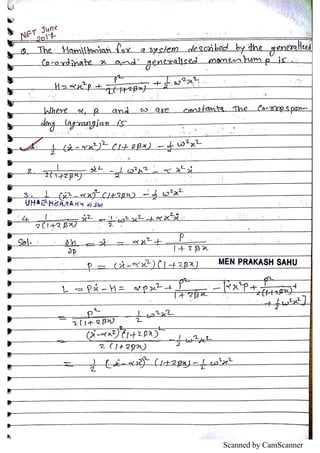 NET June 2017
Q. The Hamiltonian for a system described by the generalised
Co-ordinate x and generalised momentum p is
H = αx²p + p²/2(1+2βx) + 1/2 ω²x²
Where α, β and ω are constants. The Co-rrespon-
ding Lagrangian is
1. 1/2 (ẋ-αx²)² (1+2βx) - 1/2 ω²x²
2. 1/2(1+2βx) ẋ² - 1/2 ω²x² - αx²ẋ
3. 1/2 (ẋ²-αx)² (1+2βx) - 1/2 ω²x²
4. 1/2(1+2βx) ẋ² - 1/2 ω²x² + αx²ẋ
Sol. ∂H/∂p = ẋ = αx² + p/1+2βx
p = (ẋ-αx²)(1+2βx) MEN PRAKASH SAHU
L = Pẋ - H = αpx² + p²/1+2βx - [αx²p + p²/2(1+2βx) + 1/2 ω²x²]
= p²/2(1+2βx) - 1/2 ω²x²
= (ẋ-αx²)²(1+2βx)²/2(1+2βx) - 1/2 ω²x²
= 1/2 (ẋ-αx²)² (1+2βx) - 1/2 ω²x²
Scanned by CamScanner